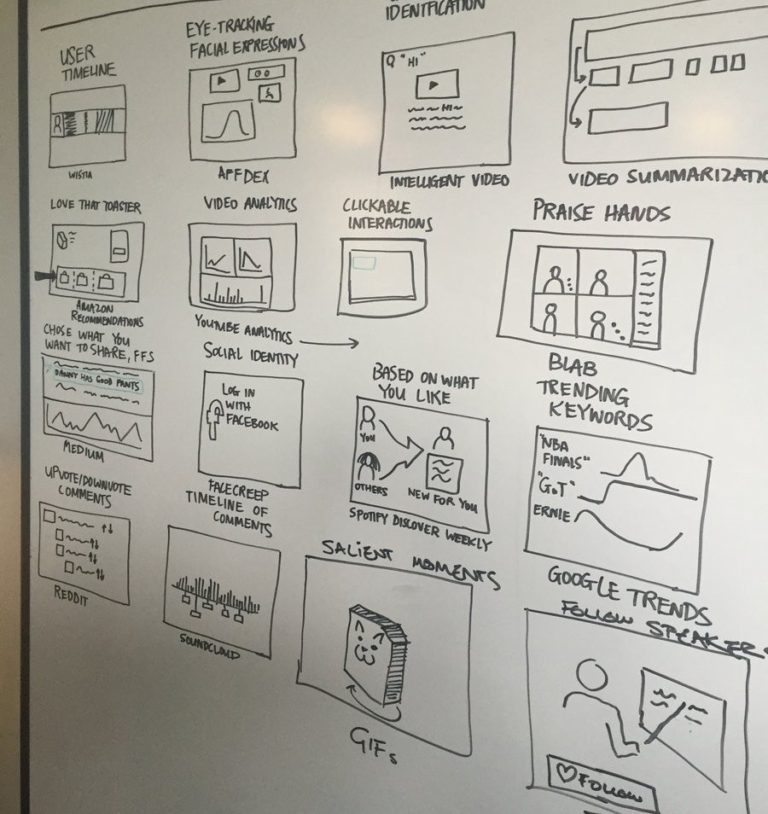 IDENTIFICATION
EYE-TRACKING
FACIAL EXPRESSIONS
USER
TIMELINE
WISTIA
APFDEX
Q "HI"
HI
INTELLIGENT VIDEO
VIDEO SUMMARIZATIO
LOVE THAT TOASTER
AMAZON
RECOMMENDATIONS
VIDEO ANALYTICS
YOUTUBE ANALYTICS
CLICKABLE
INTERACTIONS
PRAISE HANDS
BLAB
CHOSE WHAT YOU
WANT TO SHARE, FFS
DANNY HAS GOOD PANTS
MEDIUM
SOCIAL IDENTITY
LOG IN
WITH
FACEBOOK
FACECREEP
BASED ON WHAT
YOU LIKE
YOU
OTHERS
NEW FOR YOU
SPOTIFY DISCOVER WEEKLY
TRENDING
KEYWORDS
"NBA
FINALS"
"GoT"
ERNIE
GOOGLE TRENDS
UPVOTE/DOWNVOTE
COMMENTS
REDDIT
TIMELINE OF
COMMENTS
SOUNDCLOUD
SALIENT MOMENTS
GIFs
FOLLOW SPEAKER
FOLLOW